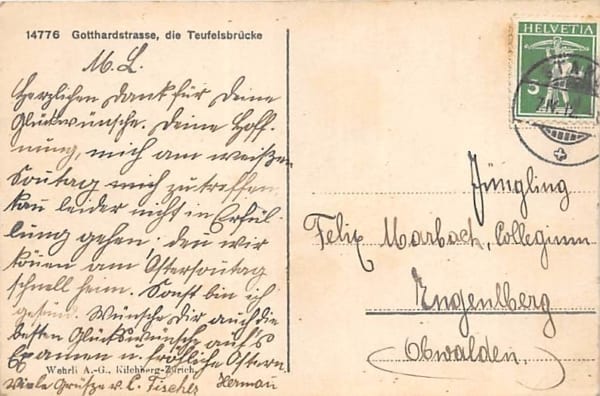 14776 Gotthardstrasse, die Teufelsbrücke
M. L.
Herzlichen Dank für Deine
Glückwünsche. Deine Hoff-
nung, mich am weißen
Sontag mich zu treffen,
kan leider nicht in Erfül-
lung gehen, den wir
könen am Ostersontag
schnell heim. Sonst bin ich
gesund. Wünsche Dir auch die
besten Glückswünsch aufs
Examen u. fröhliche Ostern
Wehrli A.-G., Kilchberg-Zürich.
Viele Grüsse v. L. Fischer Herman
HELVETIA
5
Jüngling
Felix Marbach, Collegium
Engenlberg
Obwalden.